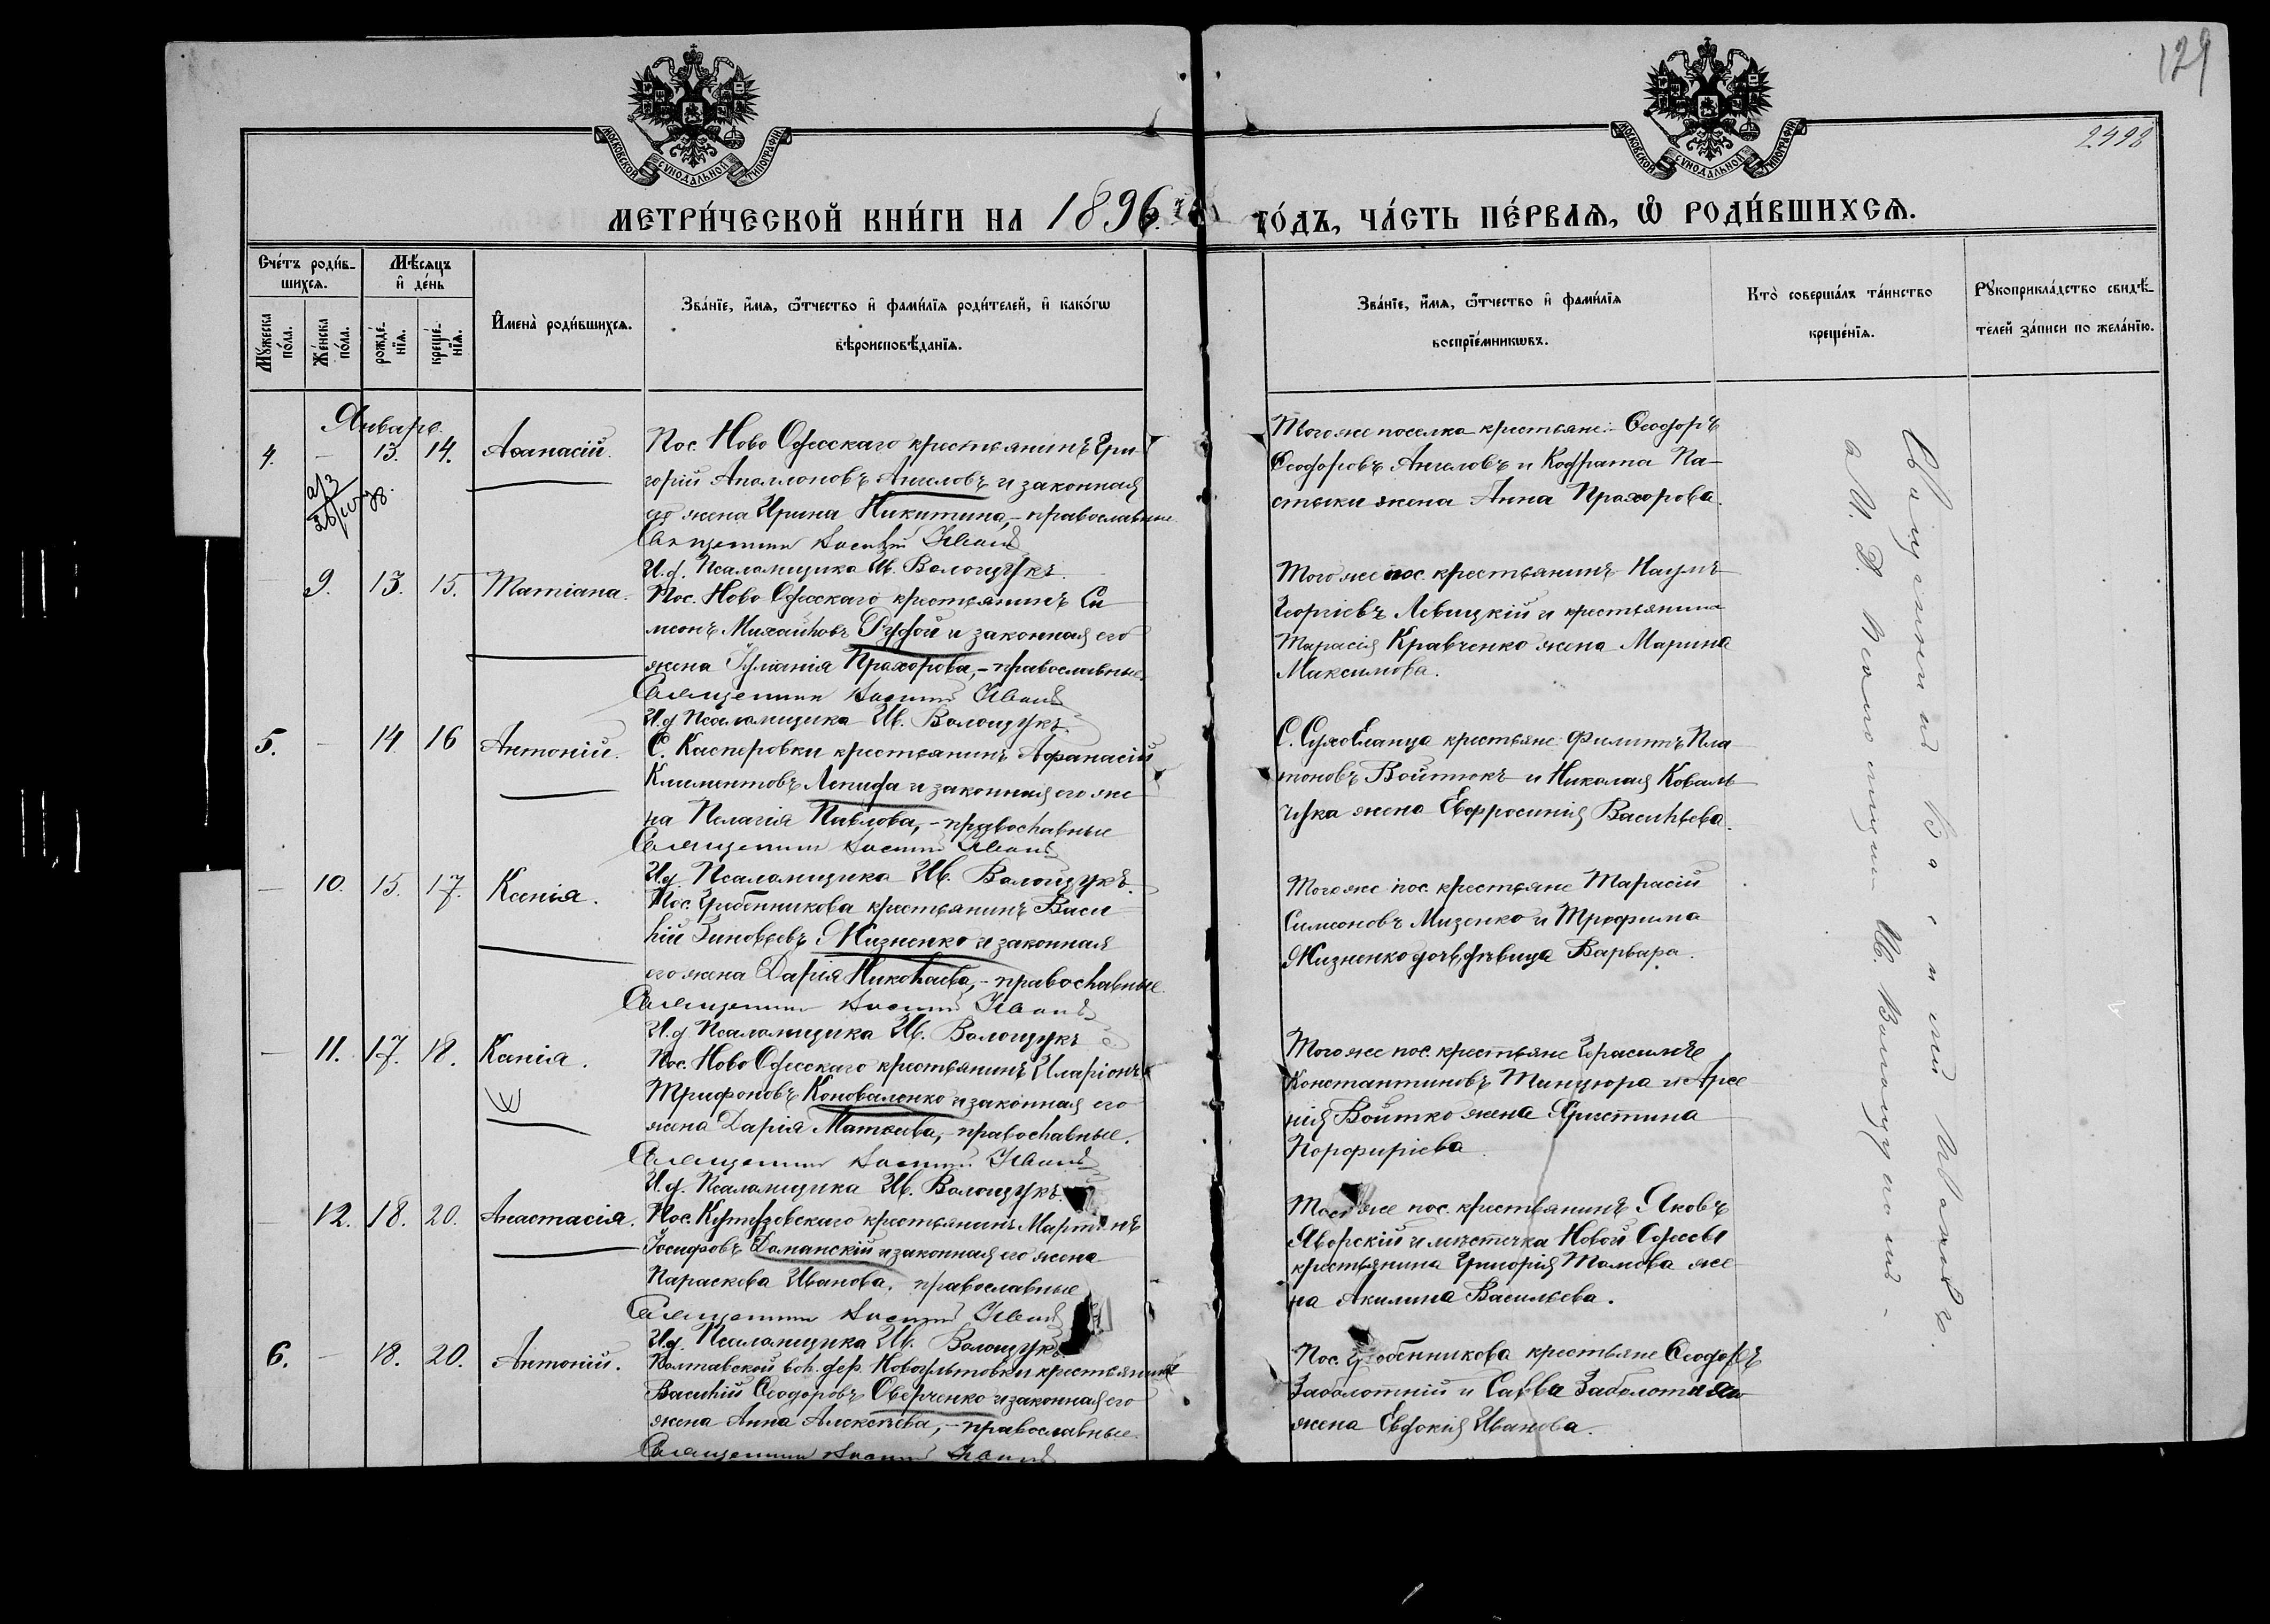 129
2498
МОСКОВСКОЙ СУНОДАЛЬНОЙ ТИПОГРАФІИ
МОСКОВСКОЙ СУНОДАЛЬНОЙ ТИПОГРАФІИ
МЕТРИ́ЧЕСКОЙ КНИ́ГИ НА 1896 й
ГО́ДЪ, ЧА́СТЬ ПЕ́РВАѦ, Ѡ҆ РОДИ́ВШИХСѦ.
Сче́тъ роди́в-
шихсѧ.
Мѣ́сѧцъ
и҆ де́нь
Мꙋ́жеска по́ла.
Же́нска по́ла.
рожде́-
нїѧ.
креще́-
нїѧ.
И҆мена̀ роди́вшихсѧ.
Зва́нїе, и҆́мѧ, ѻ҆́тчество и҆ фами́лїѧ роди́телей, и҆ како́гѡ
вѣроисповѣ́данїѧ.
Зва́нїе, и҆́мѧ, ѻ҆́тчество и҆ фами́лїѧ
воспрїе́мникѡвъ.
Кто̀ соверша́лъ та́инство
креще́нїѧ.
Рꙋкоприкла́дство свидѣ́-
телей за́писи по жела́нїю.
Январь.
4. — 13. 14. Аѳанасій.
Пос. Ново Одесскаго крестьянинъ Гри-
горій Аполлоновъ Ангеловъ и законная
его жена Ирина Никитина, – православные.
Священникъ Василій
И.д. Псаломщика Ив. Волощукъ.
Того же поселка крестьяне: Ѳеодоръ
Ѳеодоровъ Ангеловъ и Кодрата Па-
стыки жена Анна Прохорова.
9. 13. 15. Татіана.
Пос. Ново Одесскаго крестьянинъ Си-
меонъ Михайловъ Рудой и законная его
жена Іуліанія Прохорова, – православные.
Священникъ Василій
И.д Псаломщика Ив. Волощукъ.
Того же пос. крестьянинъ Наумъ
Георгіевъ Левицкій и крестьянина
Тарасія Кравченко жена Марина
Максимова.
5. — 14 16 Антоній.
С. Касперовки крестьянинъ Афанасій
Климентовъ Лепида и законная его же-
на Пелагія Павлова, – православные
Священникъ Василій
И.д. Псаломщика Ив. Волощукъ.
С. Сухо Еланца крестьяне: Филиппъ Пла-
тоновъ Войтюкъ и Николая Коваль-
чука жена Евфросинія Васильева.
— 10. 15. 17. Ксенія.
Пос. Гребенникова крестьянинъ Васи-
лій Зиновьевъ Мизненко и законная
его жена Дарія Николаева, – православные.
Священникъ Василій
И.д Псаломщика Ив. Волощукъ
Того же пос. крестьяне Тарасій
Симеоновъ Мизенко и Трофима
Мизненко дочь, дѣвица Варвара.
— 11. 17. 18. Ксенія.
Пос. Ново Одесскаго крестьянинъ Иларіонъ
Трифоновъ Коноваленко и законная его
жена Дарія Матѳеева, – православные.
Священникъ Василій
И.д. Псаломщика Ив. Волощукъ.
Того же пос. крестьяне Герасимъ
Константиновъ Тинцюра и Арсе-
нія Войтко жена Христина
Порфиріева.
— 12. 18. 20. Анастасія.
Пос. Кутузовскаго крестьянинъ Мартинъ
Іосифовъ Доманскій и законная его жена
Параскева Иванова, православные
Священникъ Василій
И.д. Псаломщика Ив. Волощукъ
Того же пос. крестьянинъ Яковъ
Яворскій и мѣстечка Новой Одессы
крестьянина Григорія Томова же-
на Акилина Васильева.
6. — 18. 20. Антоній.
Полтавской вол. дер. крестьянинъ
Василій Ѳеодоровъ Оверченко и законная его
жена Анна Алексѣева, – православные.
Священникъ Василій
Пос. Гребенникова крестьяне Ѳеодоръ
Заболотній и Савва Заболотняго
жена Евдокія Иванова.
Священникъ Василій
И. Д. Псаломщика Ив. Волощукъ